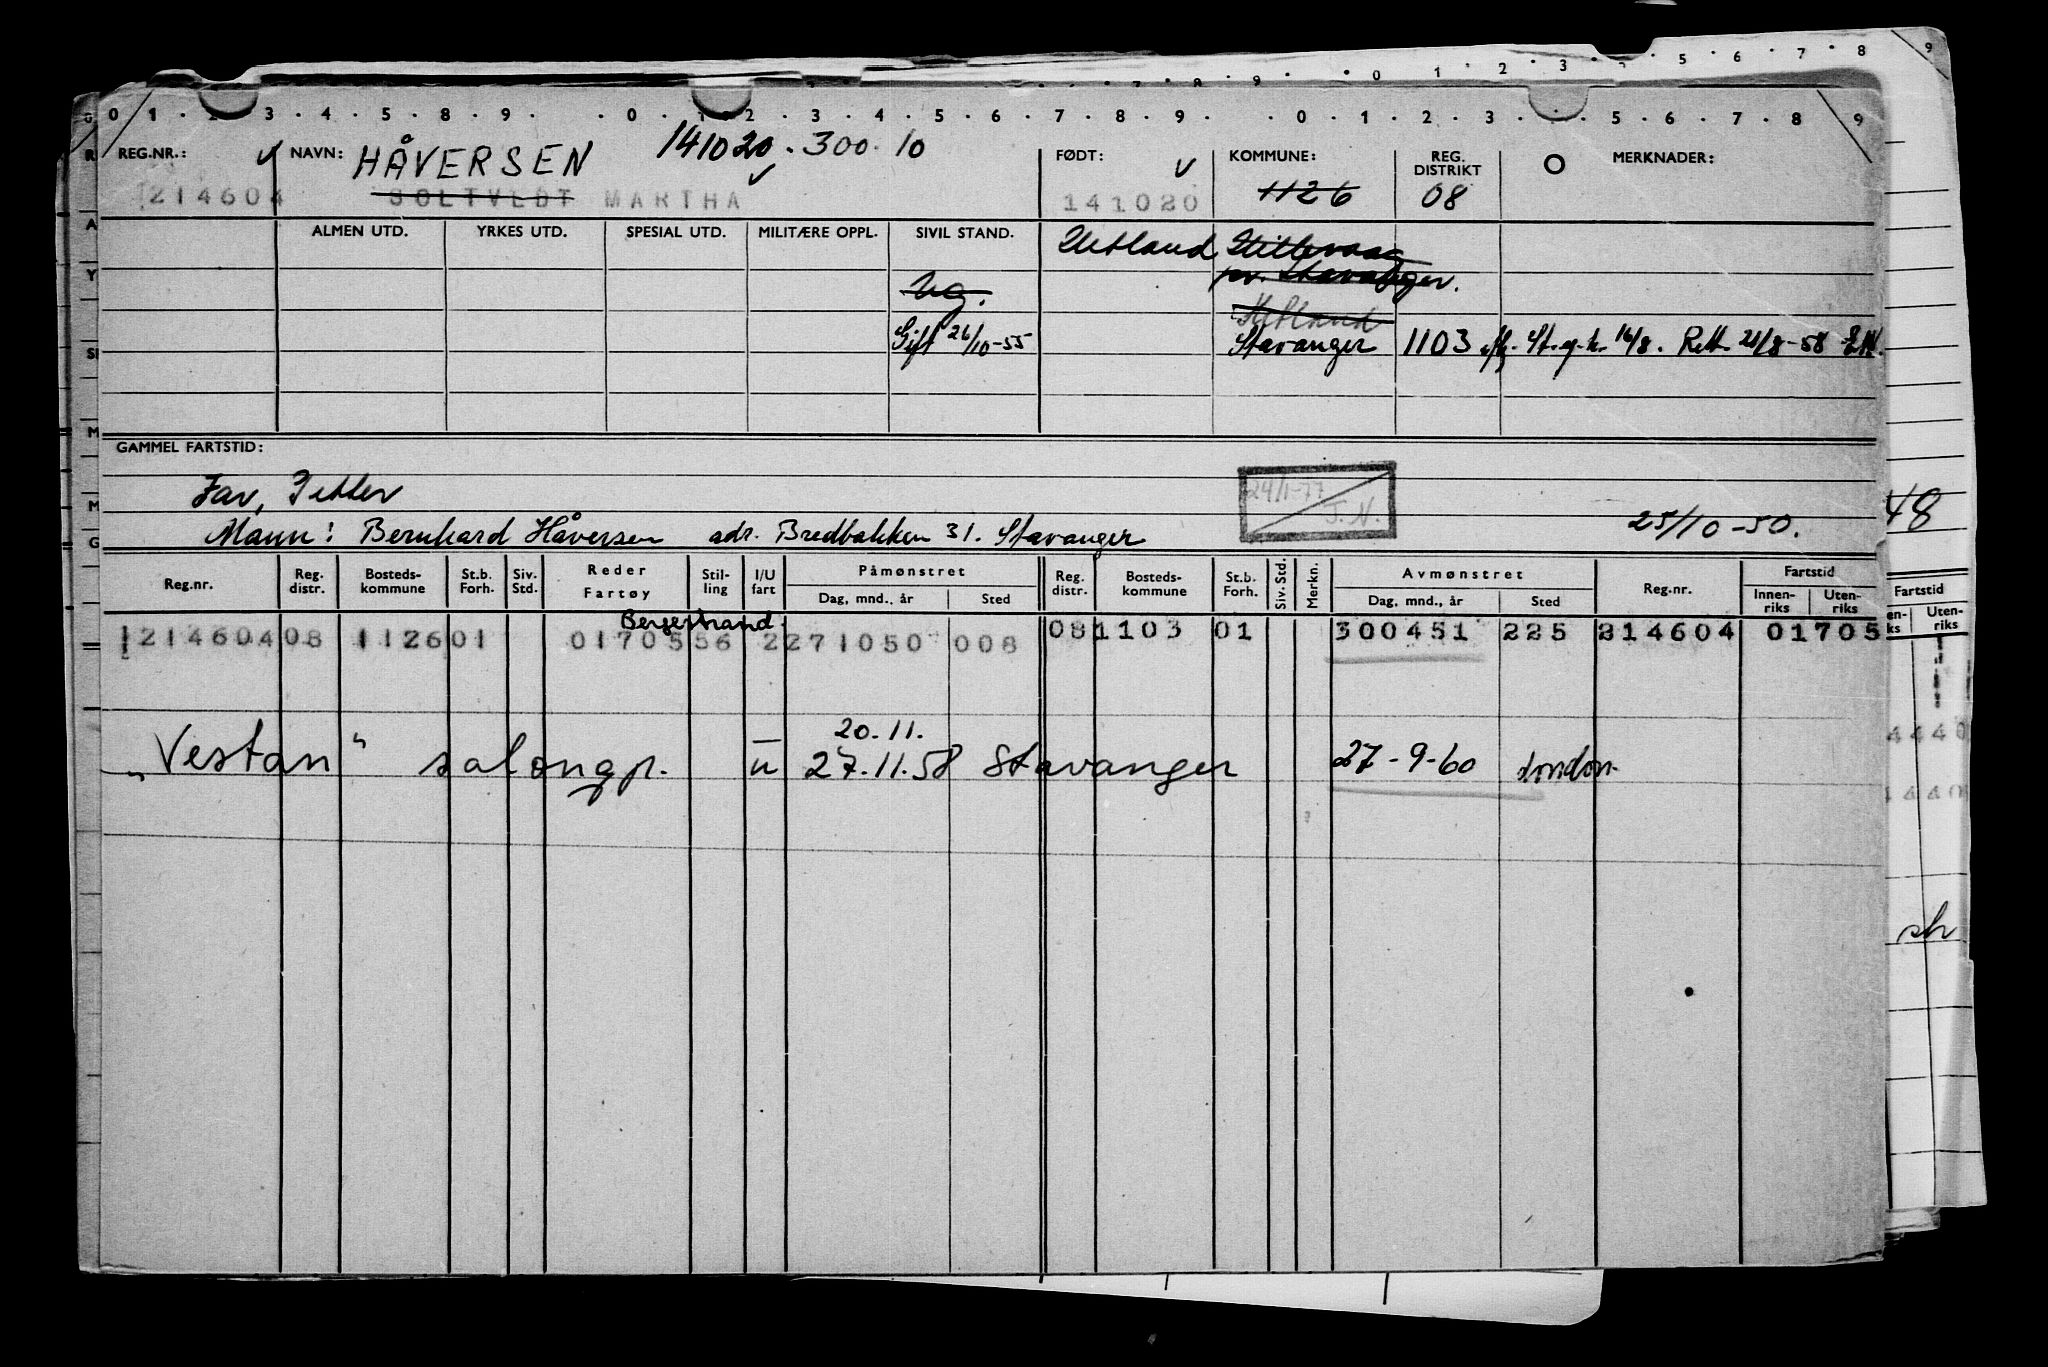 5 . 6 . 7 . 8 9
0 1 2 3 4 5 8 9 0 1 2 3 4 5 6 7 8 9 0 1 2 3 5 6 7 8 9
REG.NR.: NAVN: HÅVERSEN 141020.300.10 FØDT: KOMMUNE: REG. DISTRIKT MERKNADER:
214604 SOLTVEDT MARTHA 141020 1126 08
ALMEN UTD. YRKES UTD. SPESIAL UTD. MILITÆRE OPPL. SIVIL STAND.
pr. Stavanger.
Ug.
Gift 26/10-55 Stavanger 1103 16/8. Rett. 21/8-58
GAMMEL FARTSTID:
Far, Petter 24/1-77
J.N.
Mann: Bernhard Håversen adr. Bredbakken 31. Stavanger 25/10-50. 48
Reg.nr. Reg. distr. Bosteds- kommune St.b. Forh. Siv. Std. Reder Fartøy Stil- ling I/U fart Påmønstret Dag, mnd., år Sted Reg. distr. Bosteds- kommune St.b. Forh. Siv. Std. Merkn. Avmønstret Dag, mnd., år Sted Reg.nr. Fartstid Innen- riks Uten- riks Fartstid Uten- riks
Bergestrand.
214604 08 1126 01 01705 56 2 271050 008 08 1103 01 300451 225 214604 01705
20.11.
"Vestan" salongp. u 27.11.58 Stavanger 27-9-60 London
sh